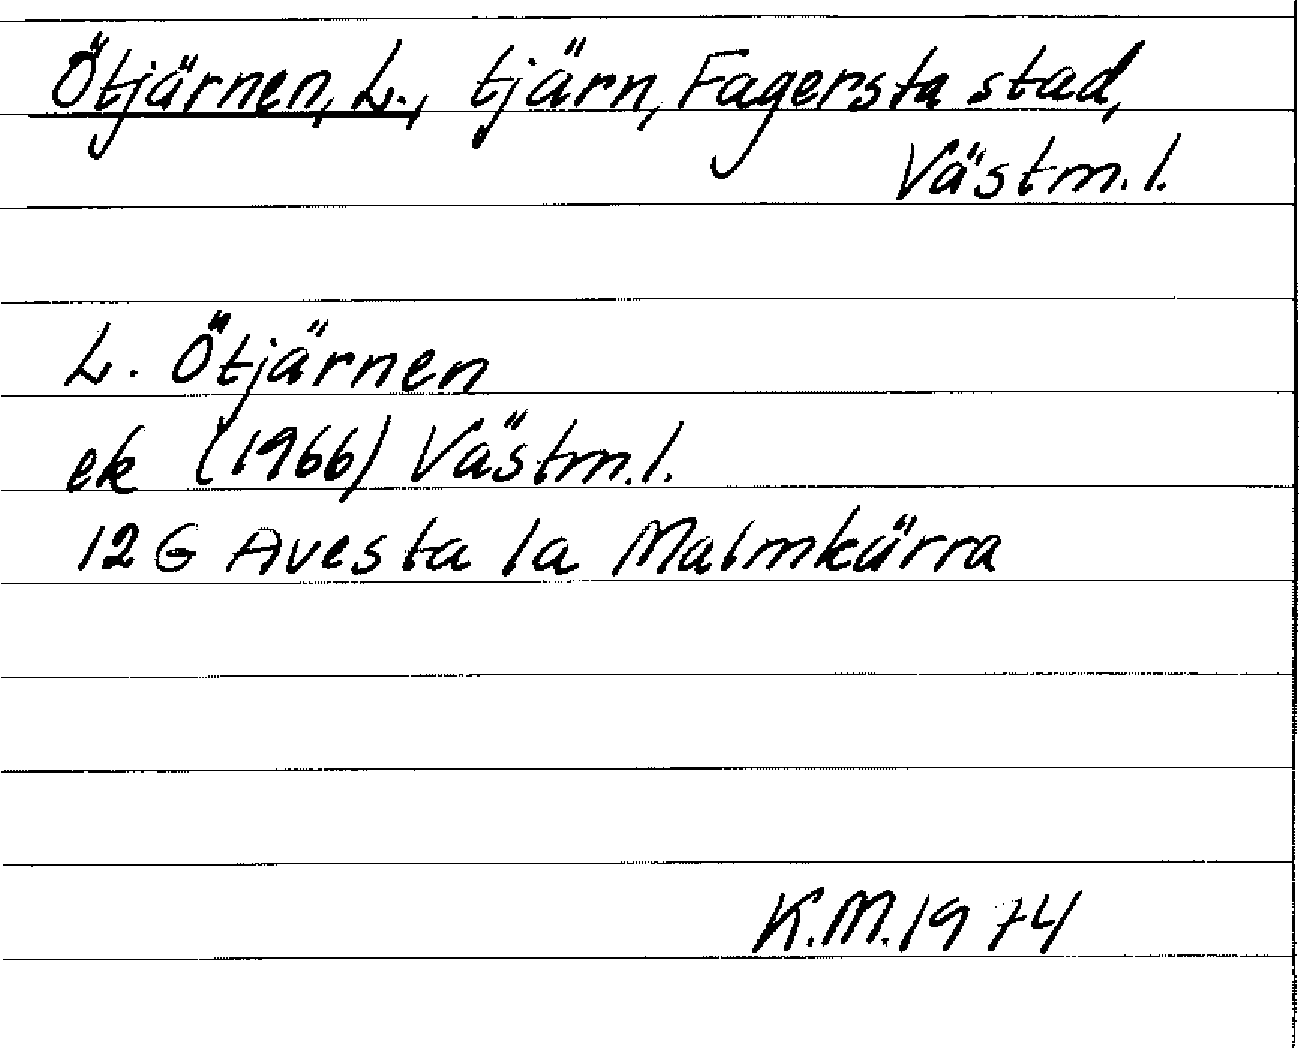 Ötjärnen, L., tjärn, Fagersta stad,
Västm.l.
L. Ötjärnen
ek (1966) Västm.l.
12 G Avesta 1a Malmkärra
K.M. 1974